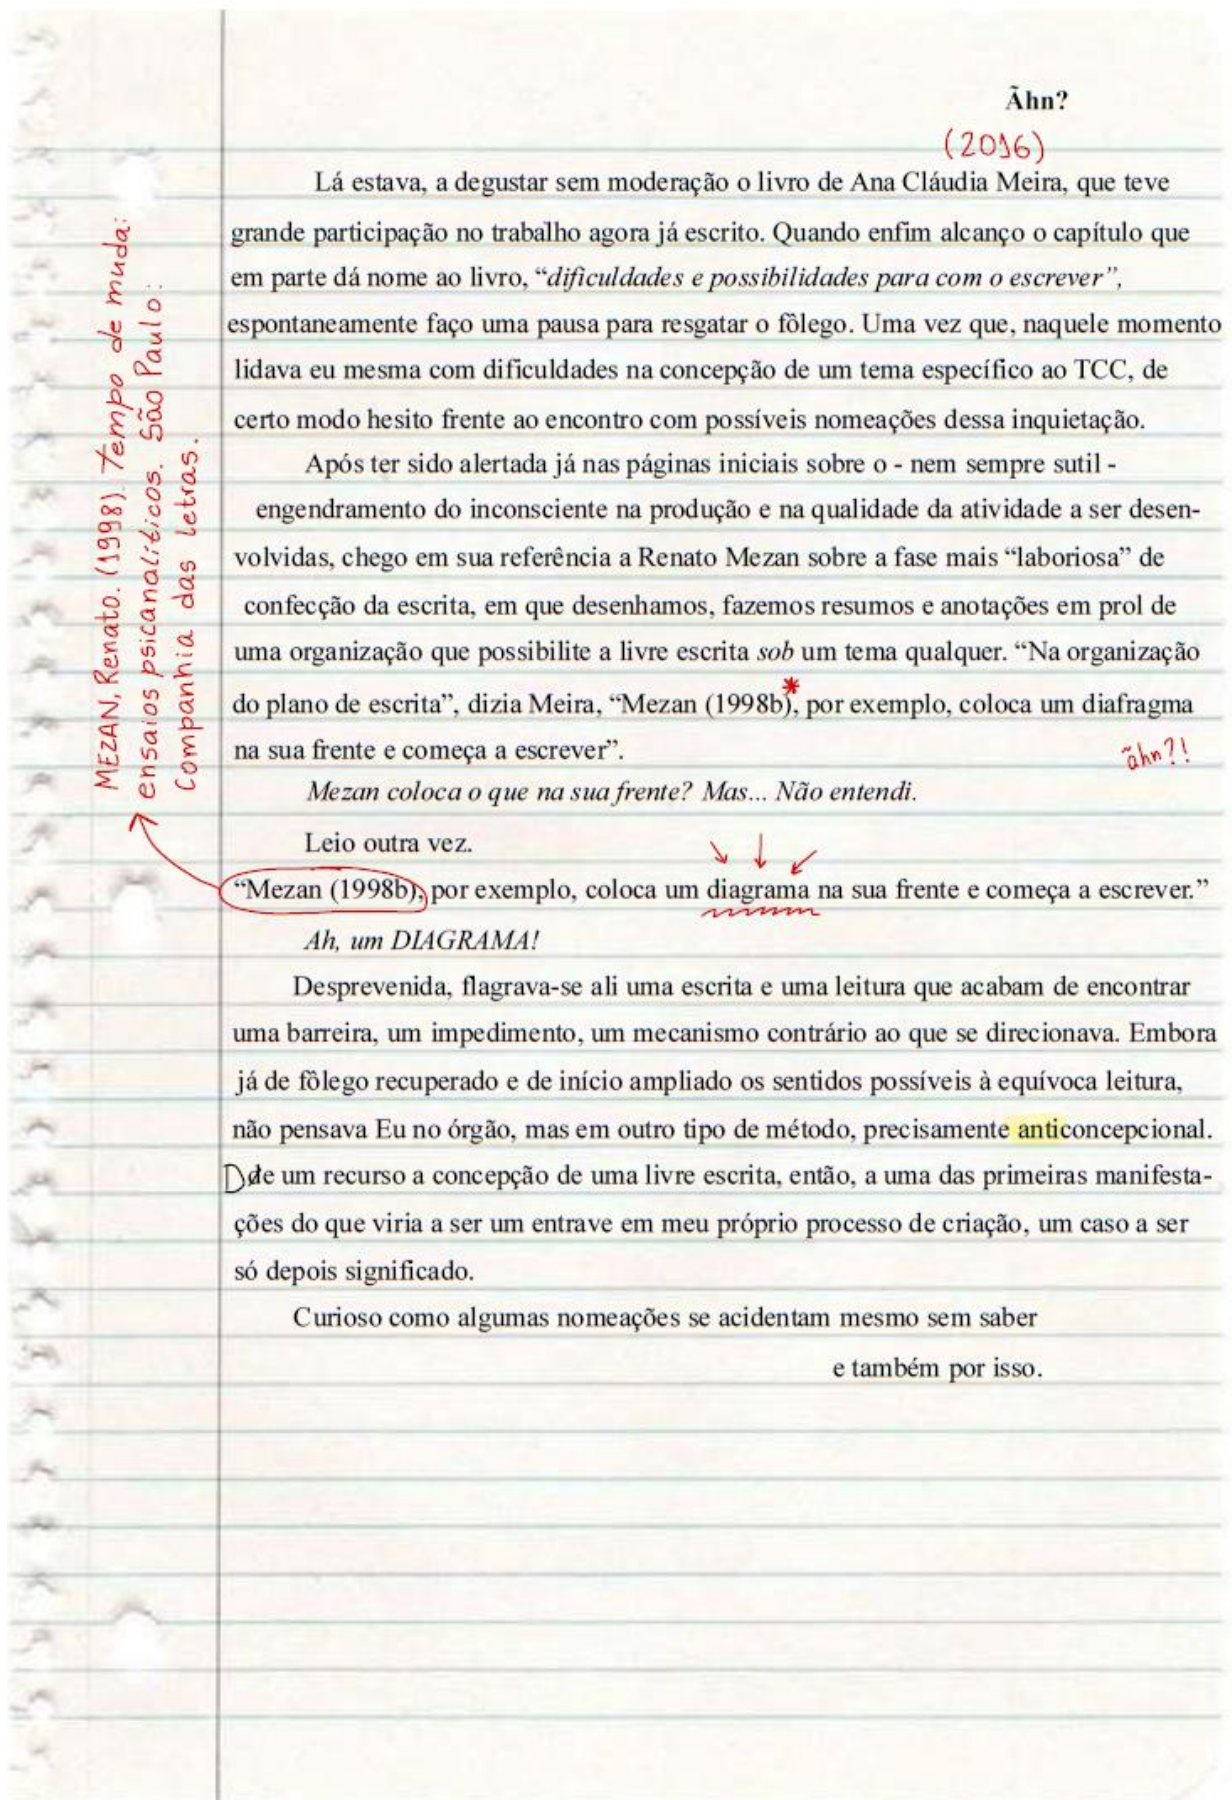 Ãhn?
(2016)
Lá estava, a degustar sem moderação o livro de Ana Cláudia Meira, que teve
grande participação no trabalho agora já escrito. Quando enfim alcanço o capítulo que
em parte dá nome ao livro, “dificuldades e possibilidades para com o escrever”,
espontaneamente faço uma pausa para resgatar o fôlego. Uma vez que, naquele momento
lidava eu mesma com dificuldades na concepção de um tema específico ao TCC, de
certo modo hesito frente ao encontro com possíveis nomeações dessa inquietação.
Após ter sido alertada já nas páginas iniciais sobre o - nem sempre sutil -
engendramento do inconsciente na produção e na qualidade da atividade a ser desen-
volvidas, chego em sua referência a Renato Mezan sobre a fase mais “laboriosa” de
confecção da escrita, em que desenhamos, fazemos resumos e anotações em prol de
uma organização que possibilite a livre escrita sob um tema qualquer. “Na organização
do plano de escrita”, dizia Meira, “Mezan (1998b)*, por exemplo, coloca um diafragma
na sua frente e começa a escrever”.
ãhn?!
Mezan coloca o que na sua frente? Mas... Não entendi.
Leio outra vez.
“Mezan (1998b), por exemplo, coloca um diagrama na sua frente e começa a escrever.”
Ah, um DIAGRAMA!
Desprevenida, flagrava-se ali uma escrita e uma leitura que acabam de encontrar
uma barreira, um impedimento, um mecanismo contrário ao que se direcionava. Embora
já de fôlego recuperado e de início ampliado os sentidos possíveis à equívoca leitura,
não pensava Eu no órgão, mas em outro tipo de método, precisamente anticoncepcional.
Dde um recurso a concepção de uma livre escrita, então, a uma das primeiras manifesta-
ções do que viria a ser um entrave em meu próprio processo de criação, um caso a ser
só depois significado.
Curioso como algumas nomeações se acidentam mesmo sem saber
e também por isso.
MEZAN, Renato. (1998). Tempo de muda:
ensaios psicanalíticos. São Paulo:
Companhia das letras.